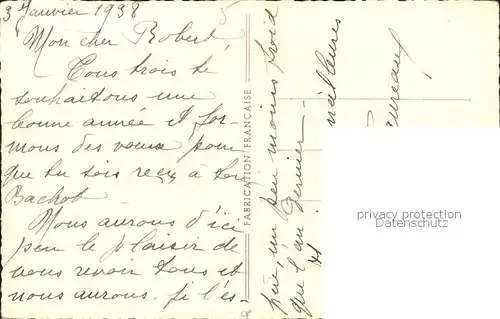 3 Janvier 1938
Mon cher Robert,
Tous trois te
souhaitons une
bonne année et for-
mons des vœux pour
que tu sois reçu à ton
Bachot
Nous aurons d'ici
peu le plaisir de
vous revoir tous et
nous aurons, je l'es
père, un peu moins froid
que l'an dernier
FABRICATION FRANÇAISE
meilleures
privacy protection
Datenschutz